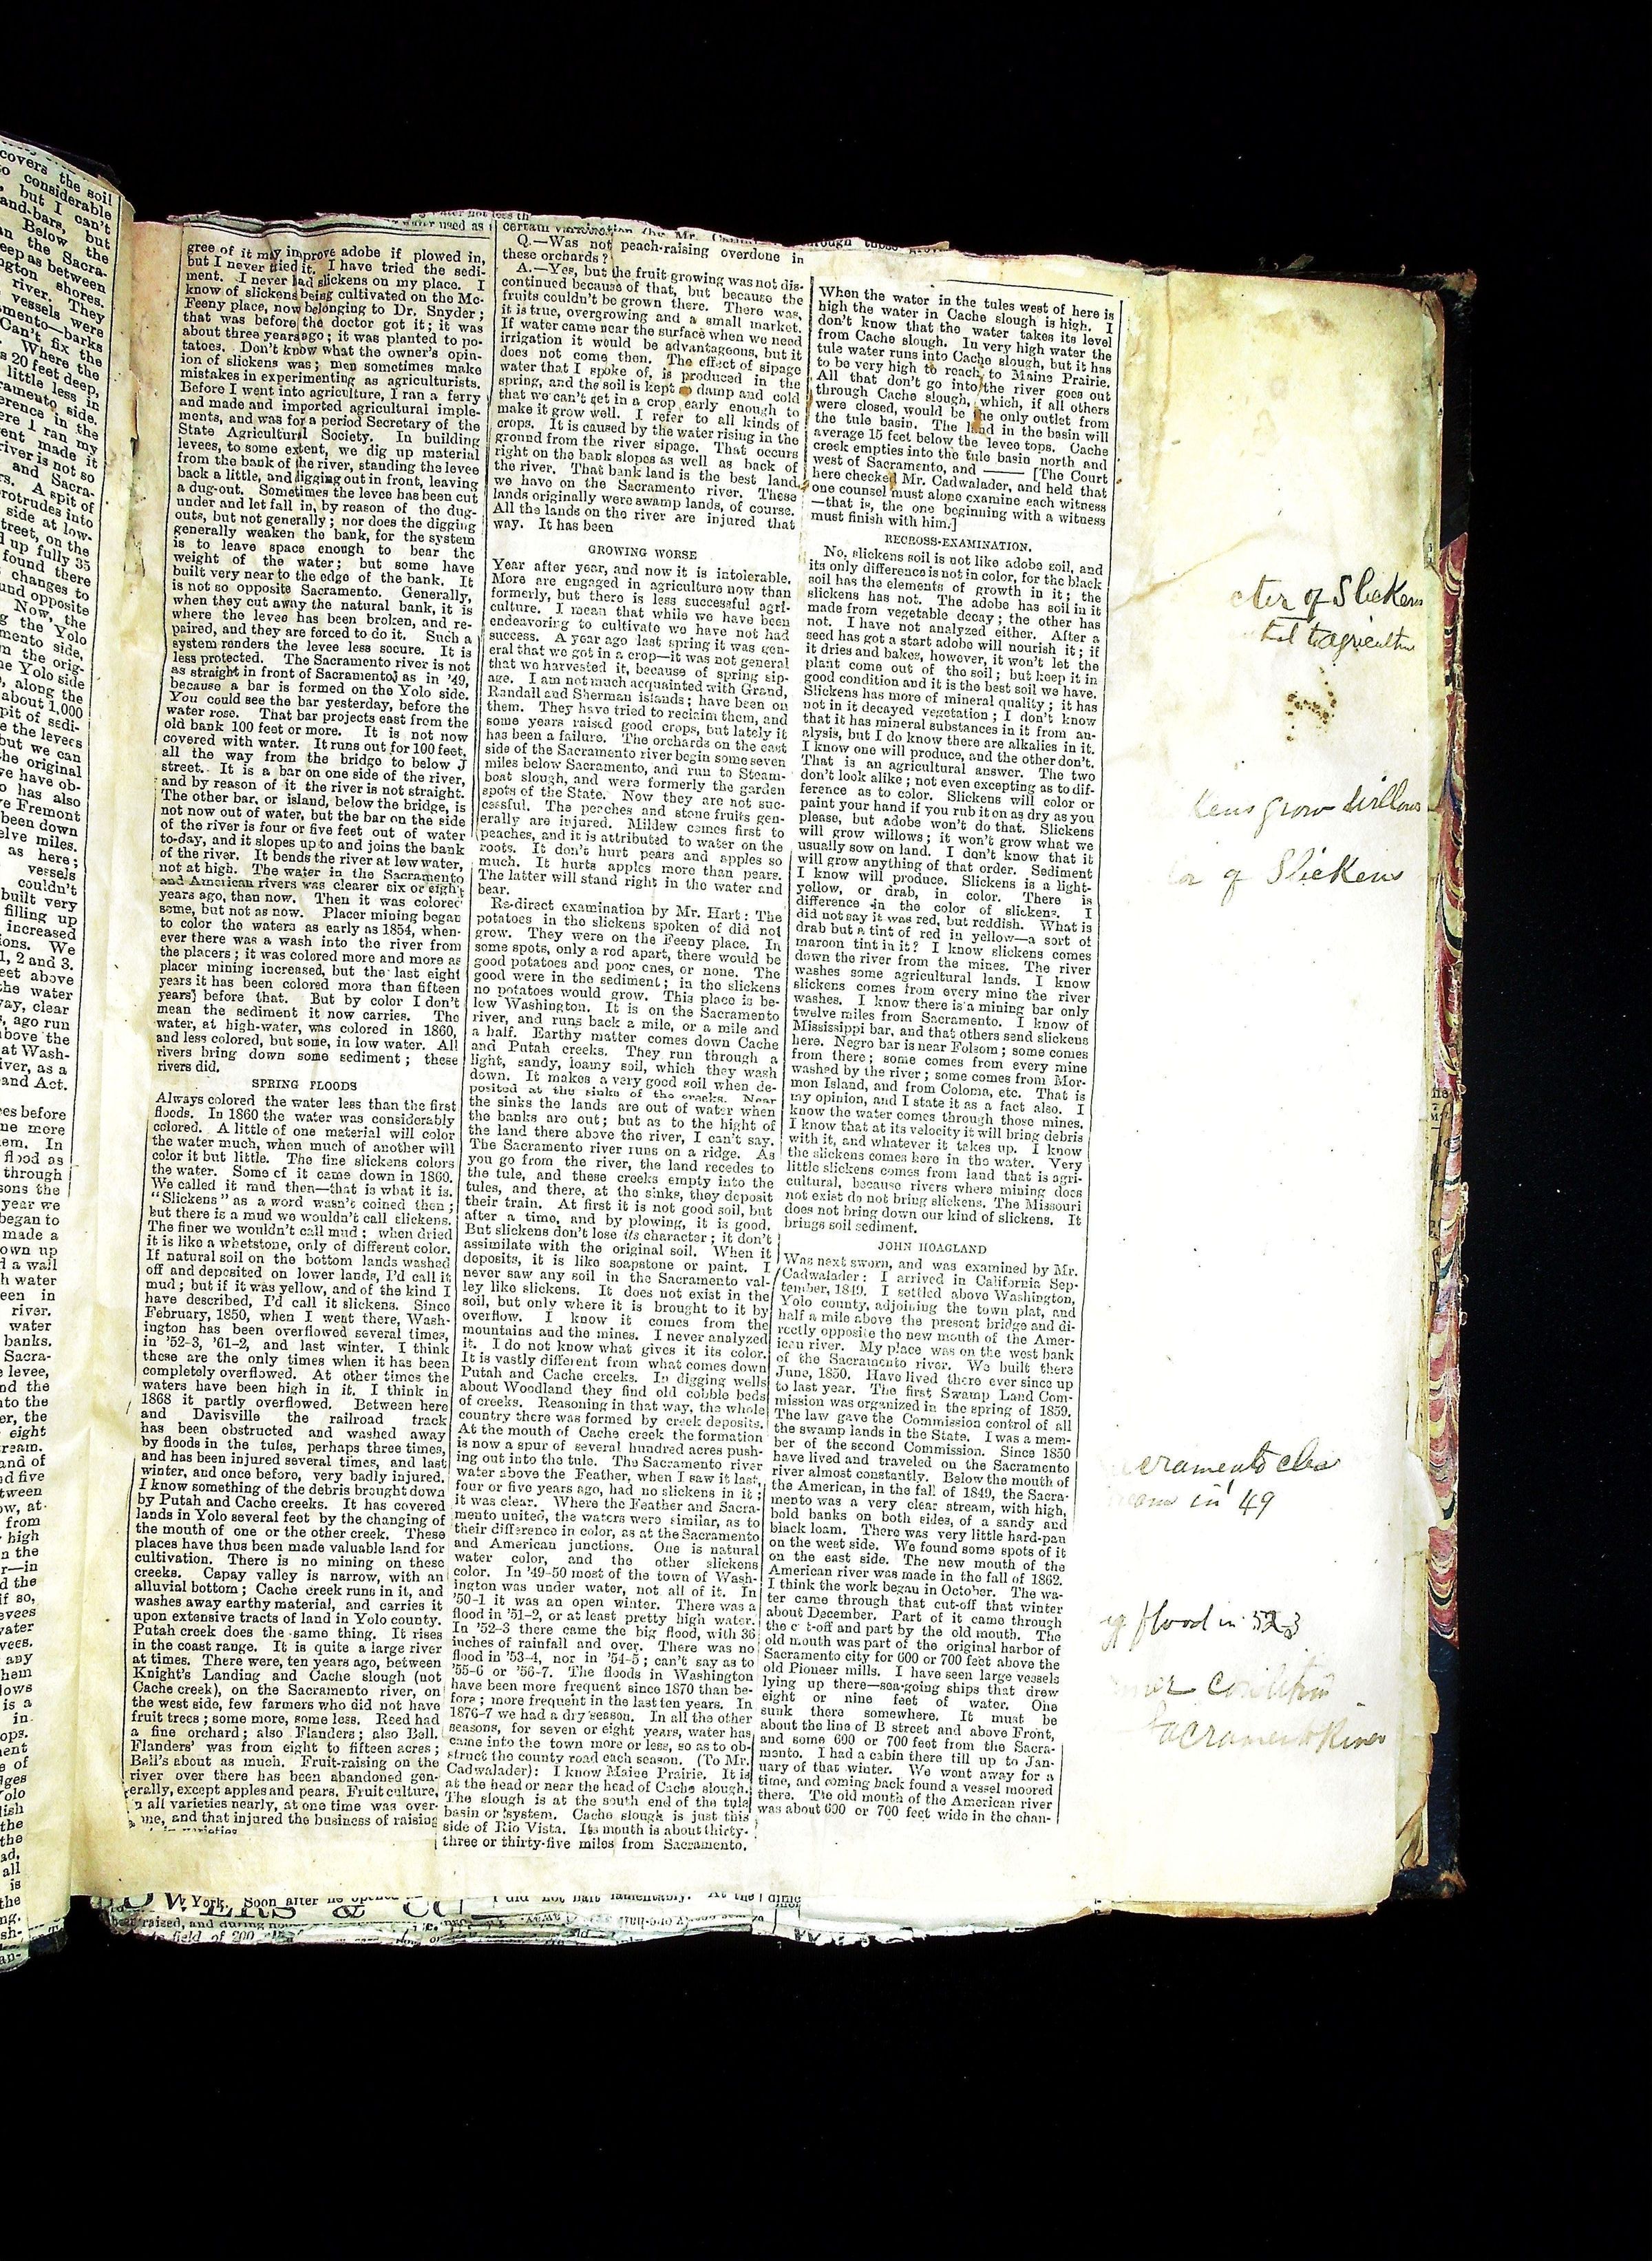 covers the soil
to considerable
, but I can't
and-bars, but
Below the
an the Sacra-
eep as between
ngton shores.
river. They
vessels were
mento—barks
Can't fix the
. Where the
s 20 feet deep,
little less in
ramento side.
erence in the
ere I ran my
ent made it
river is not so
and Sacra-
rs. A spit of
rotrudes into
side at low-
treet, on the
d up fully 35
found there
changes to
und opposite
Now, the
g the Yolo
mento side.
n the orig-
he Yolo side
, along the
about 1,000
pit of sedi-
e the levees
but we can
he original
ve have ob-
o has also
e Fremont
been down
elve miles.
as here;
vessels
couldn't
built very
filling up
increased
ions. We
1, 2 and 3.
eet above
the water
way, clear
, ago run
bove the
at Wash-
iver, as a
and Act.
es before
ne more
em. In
flood as
through
sons the
year we
began to
made a
own up
d a wall
h water
een in
river.
water
banks.
Sacra-
levee,
nd the
nto the
er, the
eight
ream.
and of
nd five
tween
ow, at
from
high
n the
r—in
d the
if so,
evees
vater
vees.
any
hem
lows
is a
in
ops.
ment
e of
dges
Yolo
lish
the
the
ad.
all
is
the
ng.
sh-
an-
gree of it may improve adobe if plowed in,
but I never tried it. I have tried the sedi-
ment. I never had slickens on my place. I
know of slickens being cultivated on the Mc-
Feeny place, now belonging to Dr. Snyder;
that was before the doctor got it; it was
about three years ago; it was planted to po-
tatoes. Don't know what the owner's opin-
ion of slickens was; men sometimes make
mistakes in experimenting as agriculturists.
Before I went into agriculture, I ran a ferry
and made and imported agricultural imple-
ments, and was for a period Secretary of the
State Agricultural Society. In building
levees, to some extent, we dig up material
from the bank of the river, standing the levee
back a little, and digging out in front, leaving
a dug-out. Sometimes the levee has been cut
under and let fall in, by reason of the dug-
outs, but not generally; nor does the digging
generally weaken the bank, for the system
is to leave space enough to bear the
weight of the water; but some have
built very near to the edge of the bank. It
is not so opposite Sacramento. Generally,
when they cut away the natural bank, it is
where the levee has been broken, and re-
paired, and they are forced to do it. Such a
system renders the levee less secure. It is
less protected. The Sacramento river is not
as straight in front of Sacramento] as in '49,
because a bar is formed on the Yolo side.
You could see the bar yesterday, before the
water rose. That bar projects east from the
old bank 100 feet or more. It is not now
covered with water. It runs out for 100 feet,
all the way from the bridge to below J
street. It is a bar on one side of the river,
and by reason of it the river is not straight.
The other bar, or island, below the bridge, is
not now out of water, but the bar on the side
of the river is four or five feet out of water
to-day, and it slopes up to and joins the bank
of the river. It bends the river at low water,
not at high. The water in the Sacramento
and American rivers was clearer six or eight
years ago, than now. Then it was colored
some, but not as now. Placer mining began
to color the waters as early as 1854, when-
ever there was a wash into the river from
the placers; it was colored more and more as
placer mining increased, but the last eight
years it has been colored more than fifteen
years] before that. But by color I don't
mean the sediment it now carries. The
water, at high-water, was colored in 1860,
and less colored, but some, in low water. All
rivers bring down some sediment; these
rivers did.
SPRING FLOODS
Always colored the water less than the first
floods. In 1860 the water was considerably
colored. A little of one material will color
the water much, when much of another will
color it but little. The fine slickens colors
the water. Some of it came down in 1860.
We called it mud then—that is what it is.
"Slickens" as a word wasn't coined then;
but there is a mud we wouldn't call slickens.
The finer we wouldn't call mud; when dried
it is like a whetstone, only of different color.
If natural soil on the bottom lands washed
off and deposited on lower lands, I'd call it
mud; but if it was yellow, and of the kind I
have described, I'd call it slickens. Since
February, 1850, when I went there, Wash-
ington has been overflowed several times,
in '52-3, '61-2, and last winter. I think
these are the only times when it has been
completely overflowed. At other times the
waters have been high in it. I think in
1868 it partly overflowed. Between here
and Davisville the railroad track
has been obstructed and washed away
by floods in the tules, perhaps three times,
and has been injured several times, and last
winter, and once before, very badly injured.
I know something of the debris brought down
by Putah and Cache creeks. It has covered
lands in Yolo several feet by the changing of
the mouth of one or the other creek. These
places have thus been made valuable land for
cultivation. There is no mining on these
creeks. Capay valley is narrow, with an
alluvial bottom; Cache creek runs in it, and
washes away earthy material, and carries it
upon extensive tracts of land in Yolo county.
Putah creek does the same thing. It rises
in the coast range. It is quite a large river
at times. There were, ten years ago, between
Knight's Landing and Cache slough (not
Cache creek), on the Sacramento river, on
the west side, few farmers who did not have
fruit trees; some more, some less. Reed had
a fine orchard; also Flanders; also Bell.
Flanders' was from eight to fifteen acres;
Bell's about as much. Fruit-raising on the
river over there has been abandoned gen-
erally, except apples and pears. Fruit culture,
all varieties nearly, at one time was over-
me, and that injured the business of raising
certain
Q.—Was not peach-raising overdone in
these orchards?
A.—Yes, but the fruit growing was not dis-
continued because of that, but because the
fruits couldn't be grown there. There was,
it is true, overgrowing and a small market.
If water came near the surface when we need
irrigation it would be advantageous, but it
does not come then. The effect of sipage
water that I spoke of, is produced in the
spring, and the soil is kept damp and cold
that we can't get in a crop early enough to
make it grow well. I refer to all kinds of
crops. It is caused by the water rising in the
ground from the river sipage. That occurs
right on the bank slopes as well as back of
the river. That bank land is the best land
we have on the Sacramento river. These
lands originally were swamp lands, of course.
All the lands on the river are injured that
way. It has been
GROWING WORSE
Year after year, and now it is intolerable.
More are engaged in agriculture now than
formerly, but there is less successful agri-
culture. I mean that while we have been
endeavoring to cultivate we have not had
success. A year ago last spring it was gen-
eral that we got in a crop—it was not general
that we harvested it, because of spring sip-
age. I am not much acquainted with Grand,
Randall and Sherman islands; have been on
them. They have tried to reclaim them, and
some years raised good crops, but lately it
has been a failure. The orchards on the east
side of the Sacramento river begin some seven
miles below Sacramento, and run to Steam-
boat slough, and were formerly the garden
spots of the State. Now they are not suc-
cessful. The peaches and stone fruits gen-
erally are injured. Mildew comes first to
peaches, and it is attributed to water on the
roots. It don't hurt pears and apples so
much. It hurts apples more than pears.
The latter will stand right in the water and
bear.
Re-direct examination by Mr. Hart: The
potatoes in the slickens spoken of did not
grow. They were on the Feeny place. In
some spots, only a rod apart, there would be
good potatoes and poor ones, or none. The
good were in the sediment; in the slickens
no potatoes would grow. This place is be-
low Washington. It is on the Sacramento
river, and runs back a mile, or a mile and
a half. Earthy matter comes down Cache
and Putah creeks. They run through a
light, sandy, loamy soil, which they wash
down. It makes a very good soil when de-
posited at the sinks of the creeks. Near
the sinks the lands are out of water when
the banks are out; but as to the hight of
the land there above the river, I can't say.
The Sacramento river runs on a ridge. As
you go from the river, the land recedes to
the tule, and these creeks empty into the
tules, and there, at the sinks, they deposit
their train. At first it is not good soil, but
after a time, and by plowing, it is good.
But slickens don't lose its character; it don't
assimilate with the original soil. When it
deposits, it is like soapstone or paint. I
never saw any soil in the Sacramento val-
ley like slickens. It does not exist in the
soil, but only where it is brought to it by
overflow. I know it comes from the
mountains and the mines. I never analyzed
it. I do not know what gives it its color.
It is vastly different from what comes down
Putah and Cache creeks. In digging wells
about Woodland they find old cobble beds
of creeks. Reasoning in that way, the whole
country there was formed by creek deposits.
At the mouth of Cache creek the formation
is now a spur of several hundred acres push-
ing out into the tule. The Sacramento river
water above the Feather, when I saw it last,
four or five years ago, had no slickens in it;
it was clear. Where the Feather and Sacra-
mento united, the waters were similar, as to
their difference in color, as at the Sacramento
and American junctions. One is natural
water color, and the other slickens
color. In '49-50 most of the town of Wash-
ington was under water, not all of it. In
'50-1 it was an open winter. There was a
flood in '51-2, or at least pretty high water.
In '52-3 there came the big flood, with 36
inches of rainfall and over. There was no
flood in '53-4, nor in '54-5; can't say as to
'55-6 or '56-7. The floods in Washington
have been more frequent since 1870 than be-
fore; more frequent in the last ten years. In
1876-7 we had a dry season. In all the other
seasons, for seven or eight years, water has
came into the town more or less, so as to ob-
struct the county road each season. (To Mr.
Cadwalader): I know Maine Prairie. It is
at the head or near the head of Cache slough.
The slough is at the south end of the tule
basin or system. Cache slough is just this
side of Rio Vista. Its mouth is about thirty-
three or thirty-five miles from Sacramento.
When the water in the tules west of here is
high the water in Cache slough is high. I
don't know that the water takes its level
from Cache slough. In very high water the
tule water runs into Cache slough, but it has
to be very high to reach to Maine Prairie.
All that don't go into the river goes out
through Cache slough, which, if all others
were closed, would be the only outlet from
the tule basin. The land in the basin will
average 15 feet below the levee tops. Cache
creek empties into the tule basin north and
west of Sacramento, and —— [The Court
here checked Mr. Cadwalader, and held that
one counsel must alone examine each witness
—that is, the one beginning with a witness
must finish with him.]
RECROSS-EXAMINATION.
No, slickens soil is not like adobe soil, and
its only difference is not in color, for the black
soil has the elements of growth in it; the
slickens has not. The adobe has soil in it
made from vegetable decay; the other has
not. I have not analyzed either. After a
seed has got a start adobe will nourish it; if
it dries and bakes, however, it won't let the
plant come out of the soil; but keep it in
good condition and it is the best soil we have.
Slickens has more of mineral quality; it has
not in it decayed vegetation; I don't know
that it has mineral substances in it from an-
alysis, but I do know there are alkalies in it.
I know one will produce, and the other don't.
That is an agricultural answer. The two
don't look alike; not even excepting as to dif-
ference as to color. Slickens will color or
paint your hand if you rub it on as dry as you
please, but adobe won't do that. Slickens
will grow willows; it won't grow what we
usually sow on land. I don't know that it
will grow anything of that order. Sediment
I know will produce. Slickens is a light-
yellow, or drab, in color. There is
difference in the color of slickens. I
did not say it was red, but reddish. What is
drab but a tint of red in yellow—a sort of
maroon tint in it? I know slickens comes
down the river from the mines. The river
washes some agricultural lands. I know
slickens comes from every mine the river
washes. I know there is a mining bar only
twelve miles from Sacramento. I know of
Mississippi bar, and that others send slickens
here. Negro bar is near Folsom; some comes
from there; some comes from every mine
washed by the river; some comes from Mor-
mon Island, and from Coloma, etc. That is
my opinion, and I state it as a fact also. I
know the water comes through those mines.
I know that at its velocity it will bring debris
with it, and whatever it takes up. I know
the slickens comes here in the water. Very
little slickens comes from land that is agri-
cultural, because rivers where mining does
not exist do not bring slickens. The Missouri
does not bring down our kind of slickens. It
brings soil sediment.
JOHN HOAGLAND
Was next sworn, and was examined by Mr.
Cadwalader: I arrived in California Sep-
tember, 1849. I settled above Washington,
Yolo county, adjoining the town plat, and
half a mile above the present bridge and di-
rectly opposite the new mouth of the Amer-
ican river. My place was on the west bank
of the Sacramento river. We built there
June, 1850. Have lived there ever since up
to last year. The first Swamp Land Com-
mission was organized in the spring of 1859.
The law gave the Commission control of all
the swamp lands in the State. I was a mem-
ber of the second Commission. Since 1850
have lived and traveled on the Sacramento
river almost constantly. Below the mouth of
the American, in the fall of 1849, the Sacra-
mento was a very clear stream, with high,
bold banks on both sides, of a sandy and
black loam. There was very little hard-pan
on the west side. We found some spots of it
on the east side. The new mouth of the
American river was made in the fall of 1862.
I think the work began in October. The wa-
ter came through that cut-off that winter
about December. Part of it came through
the c t-off and part by the old mouth. The
old mouth was part of the original harbor of
Sacramento city for 600 or 700 feet above the
old Pioneer mills. I have seen large vessels
lying up there—sea-going ships that drew
eight or nine feet of water. One
sunk there somewhere. It must be
about the line of B street and above Front,
and some 600 or 700 feet from the Sacra-
mento. I had a cabin there till up to Jan-
uary of that winter. We went away for a
time, and coming back found a vessel moored
there. The old mouth of the American river
was about 600 or 700 feet wide in the chan-
cter of Slickens
to agricultur
kens grow Willows
lor of Slickens
cramento clear
in '49
flood in 52-3
Sacramento River
York. Soon after he
ERS & CO
raised, and during
field of 200